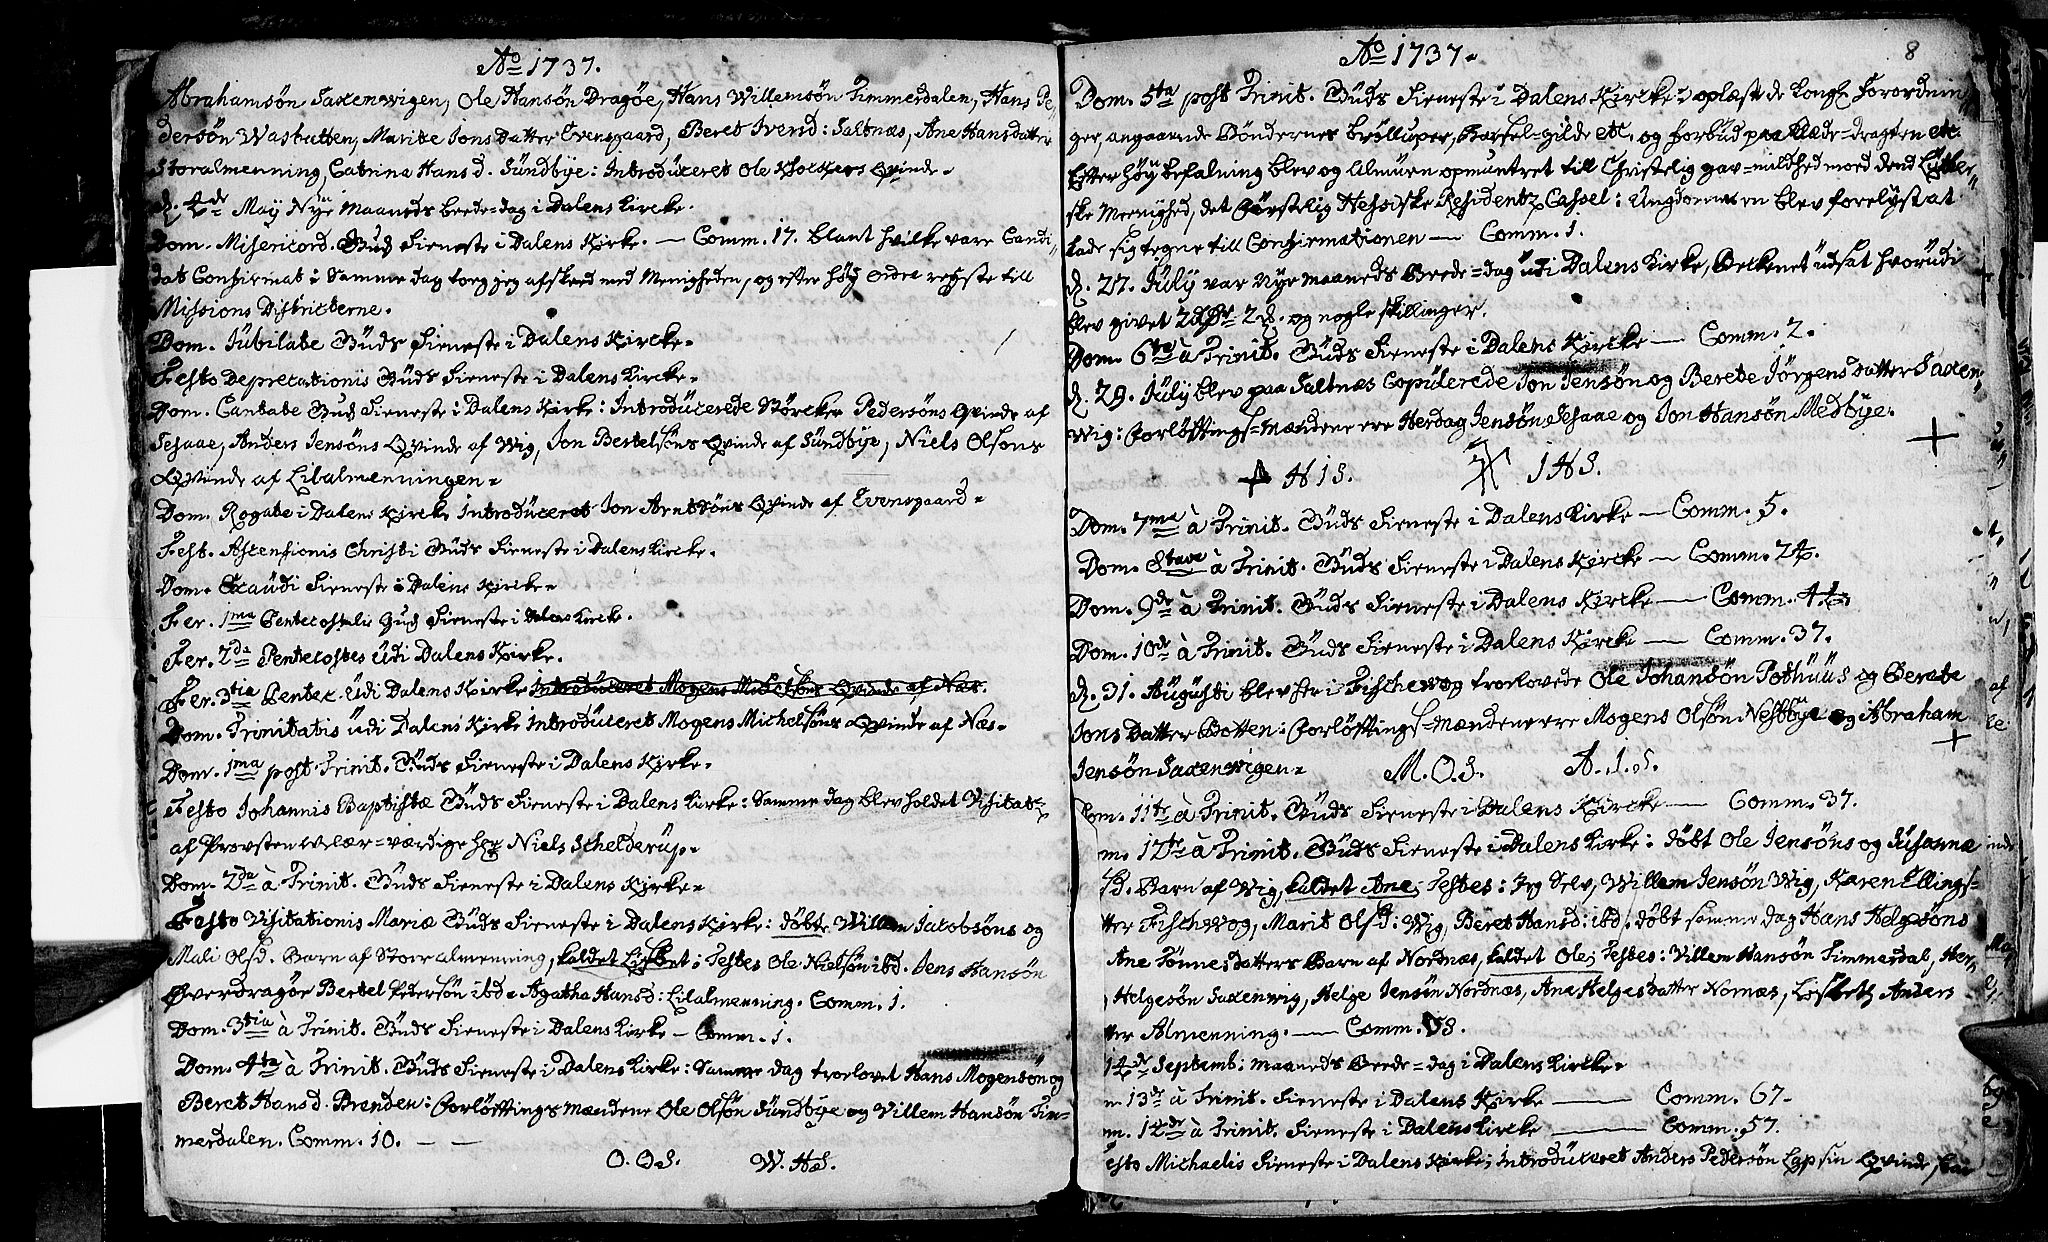 Ao 1737.
Abrahamsön Saxenwigen, Ole Hansön Dragöe, Hans Willemsön Timmerdalen, Hans Pe-
dersön Wasbutten, Marite Jons Datter Evensgaard, Beret Iversd: Saltnæs, Ane Hansdatter
Storalmenning, Catrina Hansd. Sündbye: Introduceret Ole Qvinde.
d. 2de May Nye Maaneds beede-dag i Dalens Kircke.
Dom. Misericord. Gud Tieneste i Dalens Kirke. — Comm. 17. blant hvilke vare Candi-
dat Confirmat: Samme dag toeg jeg afskeed med Menigheden, og efter höy ordre reyste till
Missions Districterne.
Dom. Jübilate Güds Tieneste i Dalens Kircke.
Festo Deprecationis Güds Tieneste i Dalens Kircke.
Dom. Cantate Gud Tieneste i Dalens Kirke: Introdücerede Störcker Pedersöns Qvinde af
Sesaae, Anders Jensöns Qvinde af Wig, Jon Bertelsöns Qvinde af Sündbye, Niels Olsöns
Qvinde af Lilalmenningen.
Dom. Rogate i Dalens Kircke Introdüceret Jon Arntsöns Qvinde af Evensgaard.
Fest. Ascensionis Christi Güds Tieneste i Dalens Kircke.
Dom. Exaudi Tieneste i Dalens Kircke.
Fer. 1ma Pentecostes Gud Tieneste i Dalens Kircke.
Fer. 2da Pentecostes Udi Dalens Kirke.
Fer. 3tia Pentec. Udi Dalens Kirke Introdüceret Mogens Michelsöns Qvinde af Næs.
Dom. Trinitatis üdi Dalens Kirke Introdüceret Mogens Michelsöns Qvinde af Næs.
Dom. 1ma post Trinit. Güds Tieneste i Dalens Kirke.
Festo Johannis Baptistæ Güds Tieneste i Dalens Kirke: Samme dag blev holdet Visitats
af Provsten velær-værdige Hr Niels Schelderup.
Dom. 2da à Trinit. Güds Tieneste i Dalens Kirke.
Festo Visitationis Mariæ Güds Tieneste i Dalens Kirke: döbte Willem Jacobsöns og
Mali Olsd. Barn af Storalmenning, kaldet Lisbet; Testes Ole Nielsön ibd. Jens Hansön
Överdragöe Bertel Pedersön ibd. Agatha Hansd: Lilalmenning. Comm. 1.
Dom. 3tia à Trinit. Güds Tieneste i Dalens Kirke — Comm. 1.
Dom. 4ta à Trinit. Güds Tieneste i Dalens Kirke: Samme dag troelovet Hans Mogensön og
Beret Hansd. Brenden: Forlöftings mændene Ole Olsön Sündbye og Villem Hansön Tim-
merdalen. Comm. 10. — —
O. O. S. W. H. S.
Ao 1737. 8
Dom. 5ta post Trinit. Güds Tieneste i Dalens Kircke: oplæst de Kongl: Forordnin-
ger, angaaende Böndernes brölluper, Barsel-gilde etc. og forbud paa Klæde-dragten etc.
Efter höy befalning blev og Almuen opmuntret till Christelig gav-mildhed mod dend Luther-
ske Meenighed, det Fürstelig Hessiske Residentz Cassel: Ungdommen blev forelyst at
lade sig tegne till Confirmationen — Comm. 1.
d. 27. July var Nye maaneds Beede-dag udi Dalens Kirke, Beckenet üdsat hvorüdi
blev givet 2 dr 2 . og nogle skillinger.
Dom. 6ta à Trinit. Güds Tieneste i Dalens Kircke — Comm. 2.
d. 29. July blev paa Saltnæs Copülerede Jon Jensön og Berete Jörgens Datter Saxen-
wig: Forlöftings-mændene ere Herdag Jensön Sesaae og Jon Hansön Medbye.
H I S. I H S.
Dom. 7ma à Trinit. Güds Tieneste i Dalens Kirke — Comm. 5.
Dom. 8tave à Trinit. Güds Tieneste i Dalens Kircke — Comm. 24.
Dom. 9de à Trinit. Güds Tieneste i Dalens Kircke — Comm. 44
Dom. 10de à Trinit. Güds Tieneste i Dalens Kircke — Comm. 37.
d. 31. Augusti blev her i Fischewog troelovede Ole Johansön Pothüüs og Berete
Jons Datter Botten: Forlöftings-mændene ere Mogens Olsön Nestbye og Abraham
Jensön Saxenwigen. M. O. S. A. I. S.
Dom. 11te à Trinit. Güds Tieneste i Dalens Kircke — Comm. 37.
m. 12te à Trinit. Güds Tieneste i Dalens Kirke: döbt Ole Jensöns og Susanne
Barn af Wig, kaldet Ane; Testes: Jeg Selv, Willem Jensön Wig, Karen Ellings-
tter Fischwog, Marit Olsd: Wig, Beret Hansd: ibd: döbt samme dag Hans Helgesöns
Ane Tönnesdatters Barn af Nordnæs, kaldet Ole; Testes: Villem Hansön Timmerdal, Her-
Helgesön Saxenwig, Helge Jensön Nordnæs, Ane Helgesdatter Nornæs, Lisbeth Anders
tter Almenning. — Comm. 58.
14de Septemb: maaneds Beede-dag i Dalens Kircke.
m 13de à Trinit. Tieneste i Dalens Kirke — Comm. 67.
m. 14de à Trinit. Tieneste i Dalens Kircke — Comm. 57.
esto Michaelis Tieneste i Dalens Kirke; Introdüceret Anders Pedersön Lap sin Qvinde,